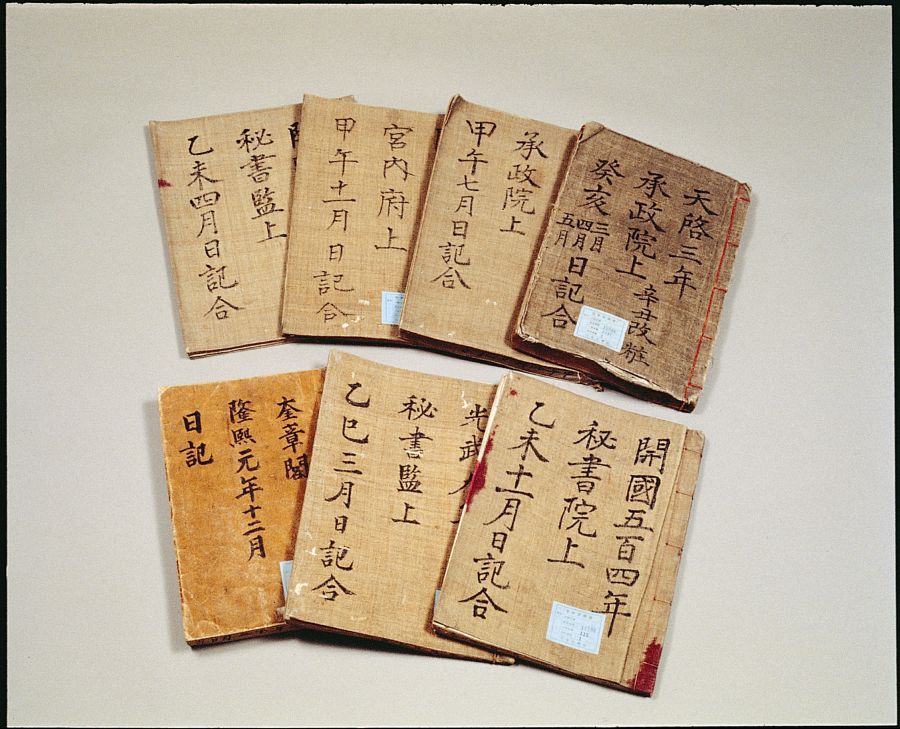 天啓三年
承政院上 辛丑改粧
癸亥 三月 四月 五月 日記合
承政院上
甲午七月日記合
宮內府上
甲午十一月日記合
秘書監上
乙未四月日記合
開國五百四年
秘書院上
乙未十一月日記合
光武
秘書監上
乙巳三月日記合
奎章閣
隆熙元年十二月
日記